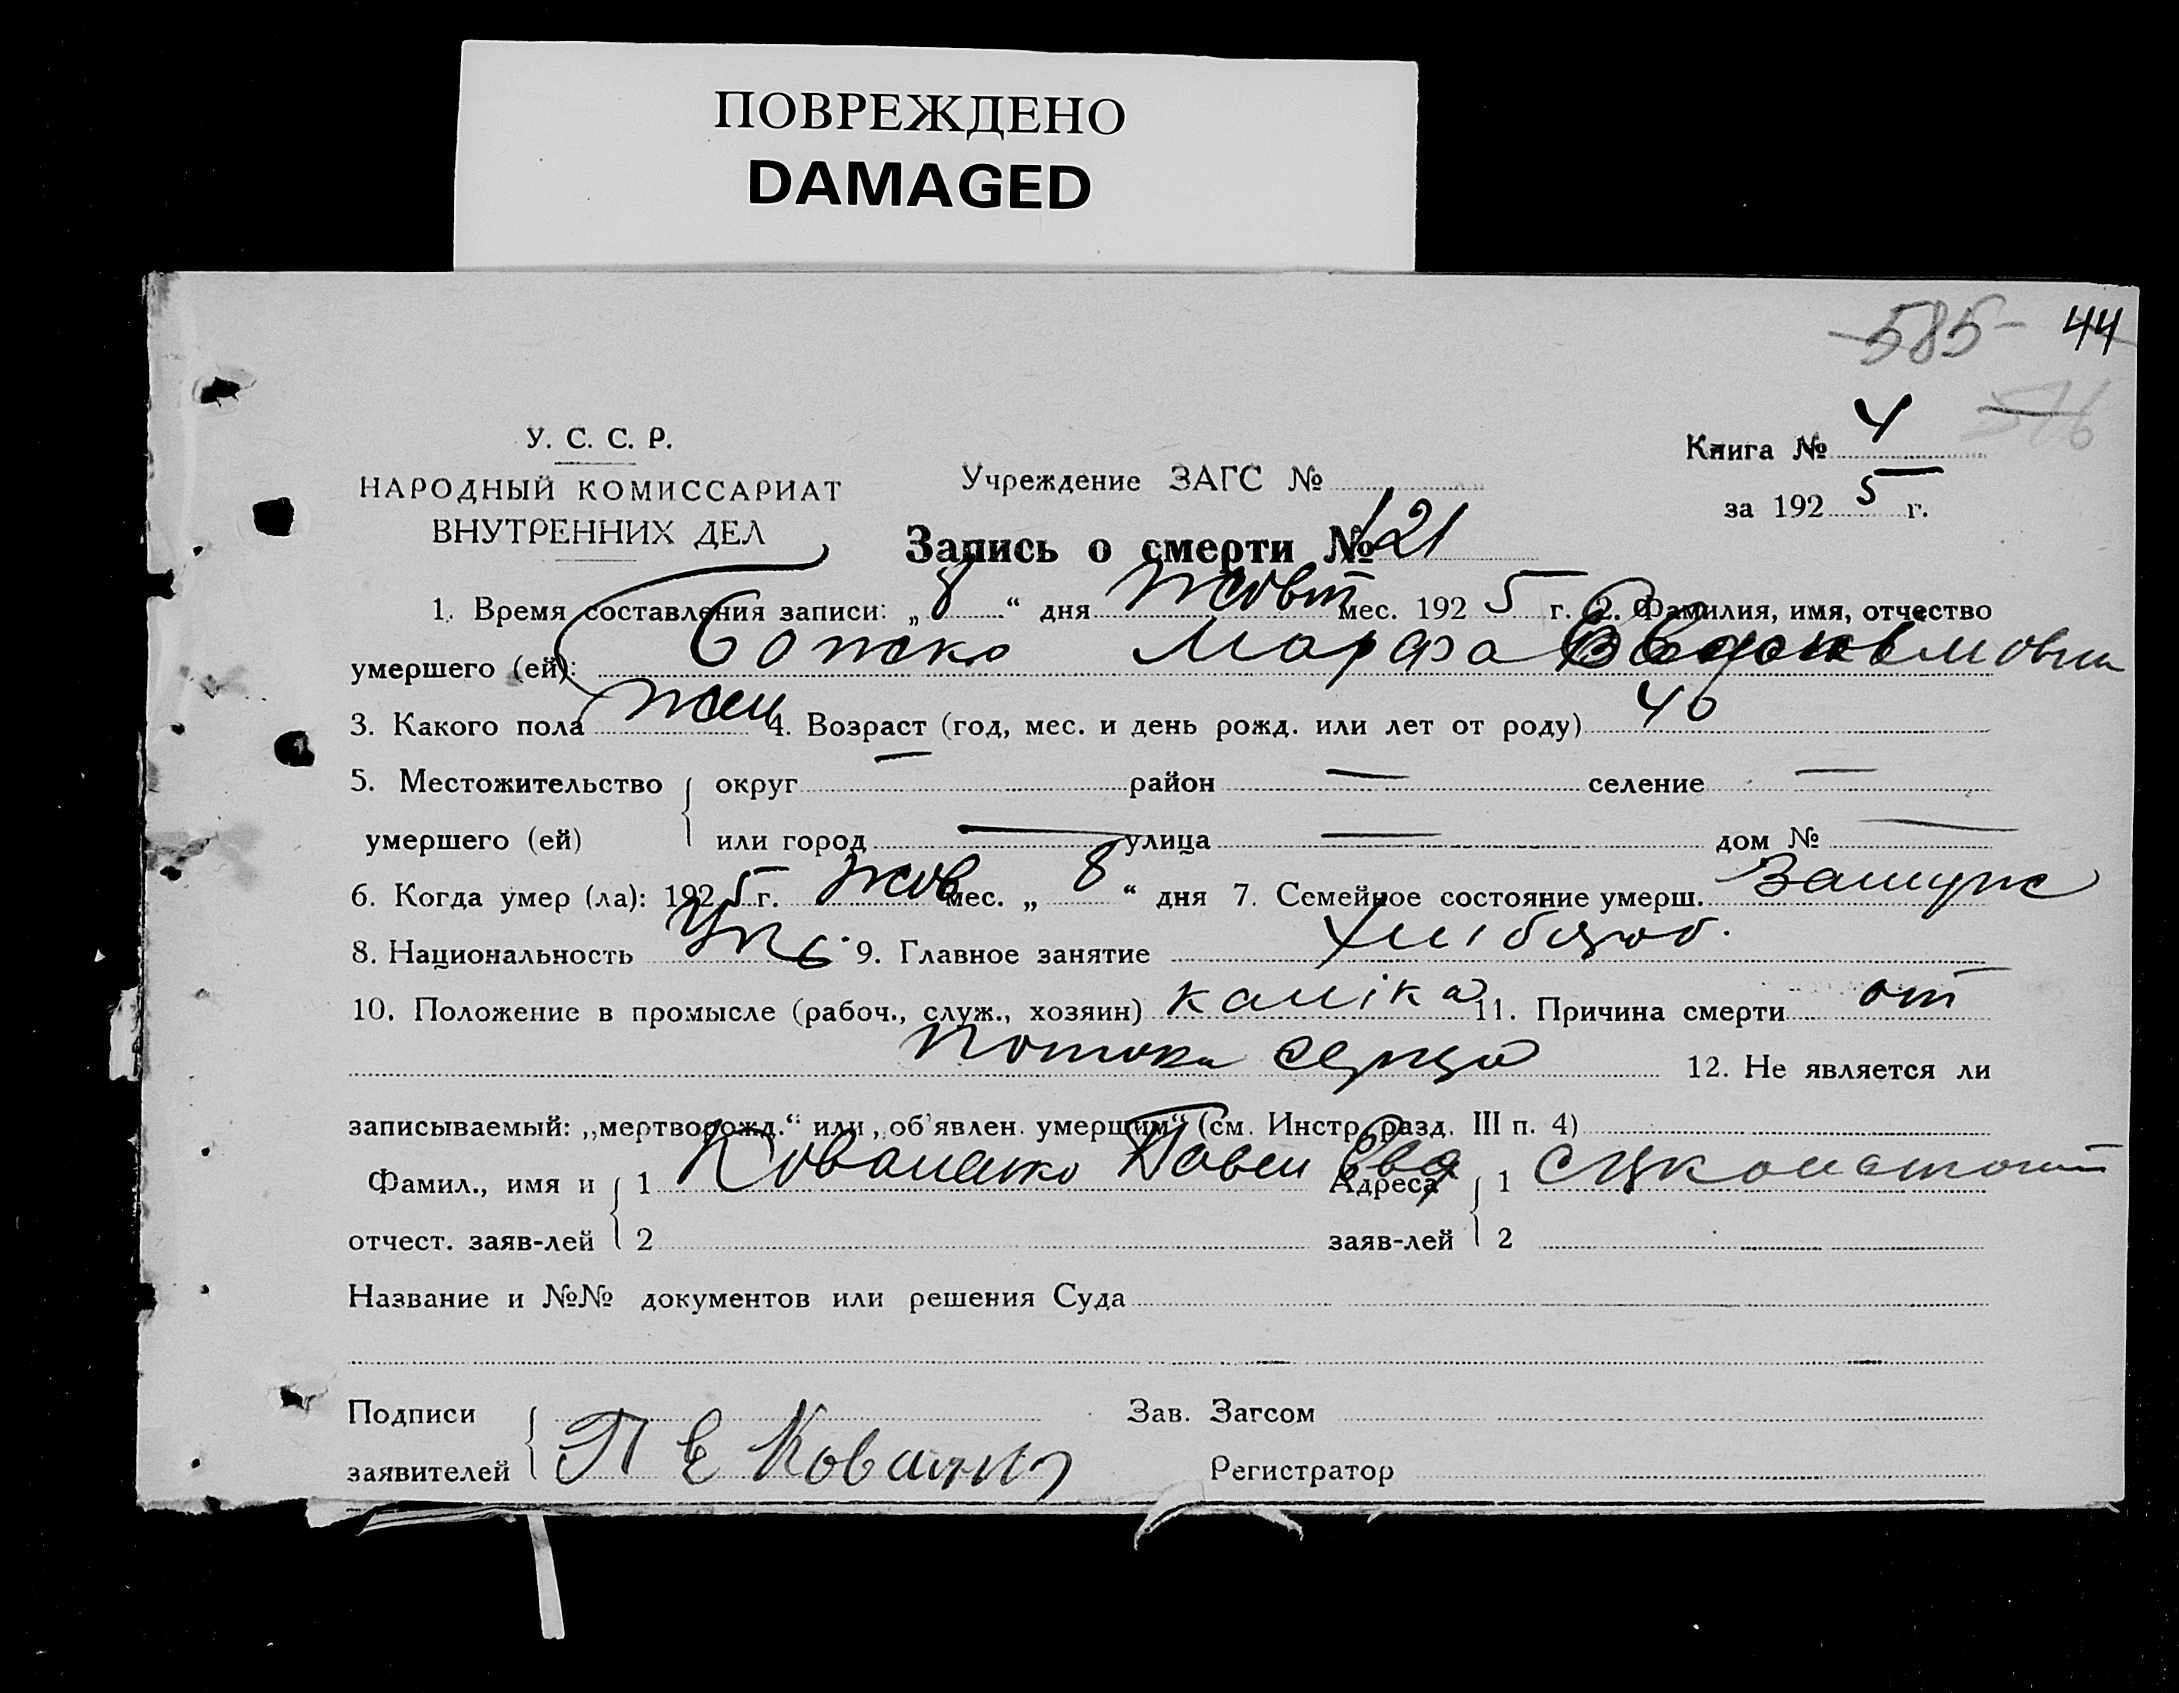 ПОВРЕЖДЕНО
DAMAGED
585 44
У. С. С. Р.
НАРОДНЫЙ КОМИССАРИАТ
ВНУТРЕННИХ ДЕЛ
Учреждение ЗАГС №
Книга № 4
за 192 5 г.
Запись о смерти № 121
1. Время составления записи: „ 8 “ дня Жовт мес. 192 5 г. 2. Фамилия, имя, отчество
умершего (ей): Божко Марфа
3. Какого пола жен 4. Возраст (год, мес. и день рожд. или лет от роду) 46
5. Местожительство округ — район — селение —
умершего (ей) или город — улица — дом № —
6. Когда умер (ла): 192 5 г. Жов мес. „ 8 “ дня 7. Семейное состояние умерш. Замужс
8. Национальность Укр 9. Главное занятие хлібороб.
10. Положение в промысле (рабоч., служ., хозяин) каліка 11. Причина смерти от
серця 12. Не является ли
записываемый: „мертворожд.“ или „об'явлен. умершим“ (см. Инстр. разд. III п. 4)
Фамил., имя и 1 Коваленко Павел Евд Адреса 1
отчест. заяв-лей 2 заяв-лей 2
Название и №№ документов или решения Суда
Подписи Зав. Загсом
заявителей П Е Регистратор